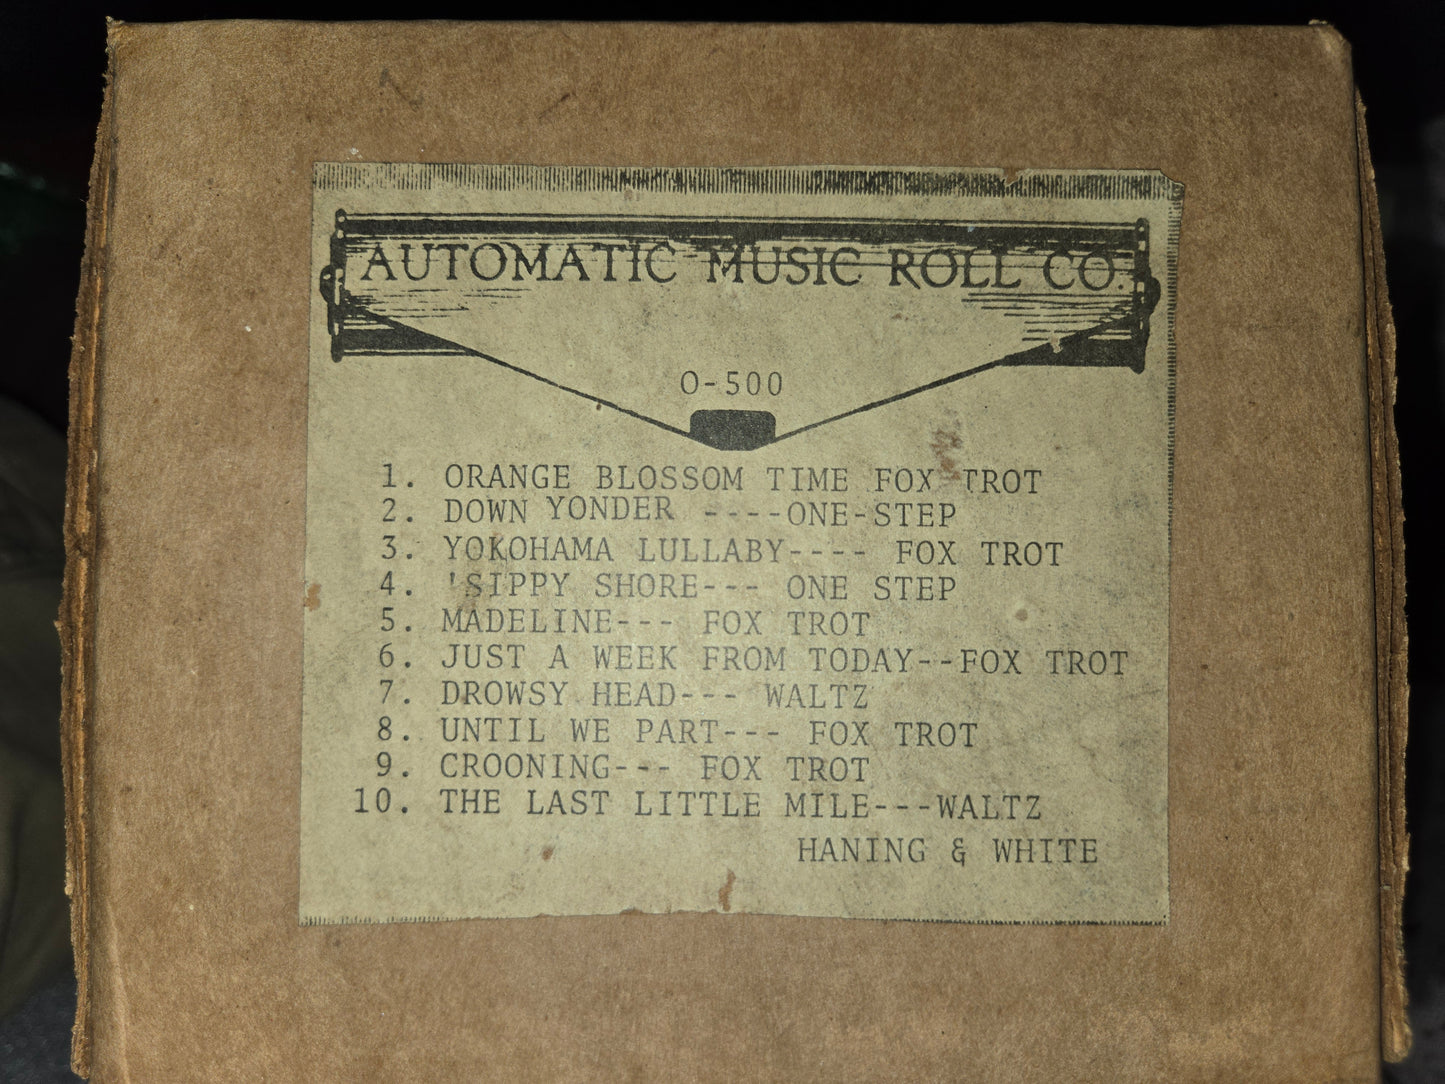 AUTOMATIC MUSIC ROLL CO.
O-500
1. ORANGE BLOSSOM TIME FOX TROT
2. DOWN YONDER ----ONE-STEP
3. YOKOHAMA LULLABY---- FOX TROT
4. 'SIPPY SHORE--- ONE STEP
5. MADELINE--- FOX TROT
6. JUST A WEEK FROM TODAY--FOX TROT
7. DROWSY HEAD--- WALTZ
8. UNTIL WE PART--- FOX TROT
9. CROONING--- FOX TROT
10. THE LAST LITTLE MILE---WALTZ
HANING & WHITE